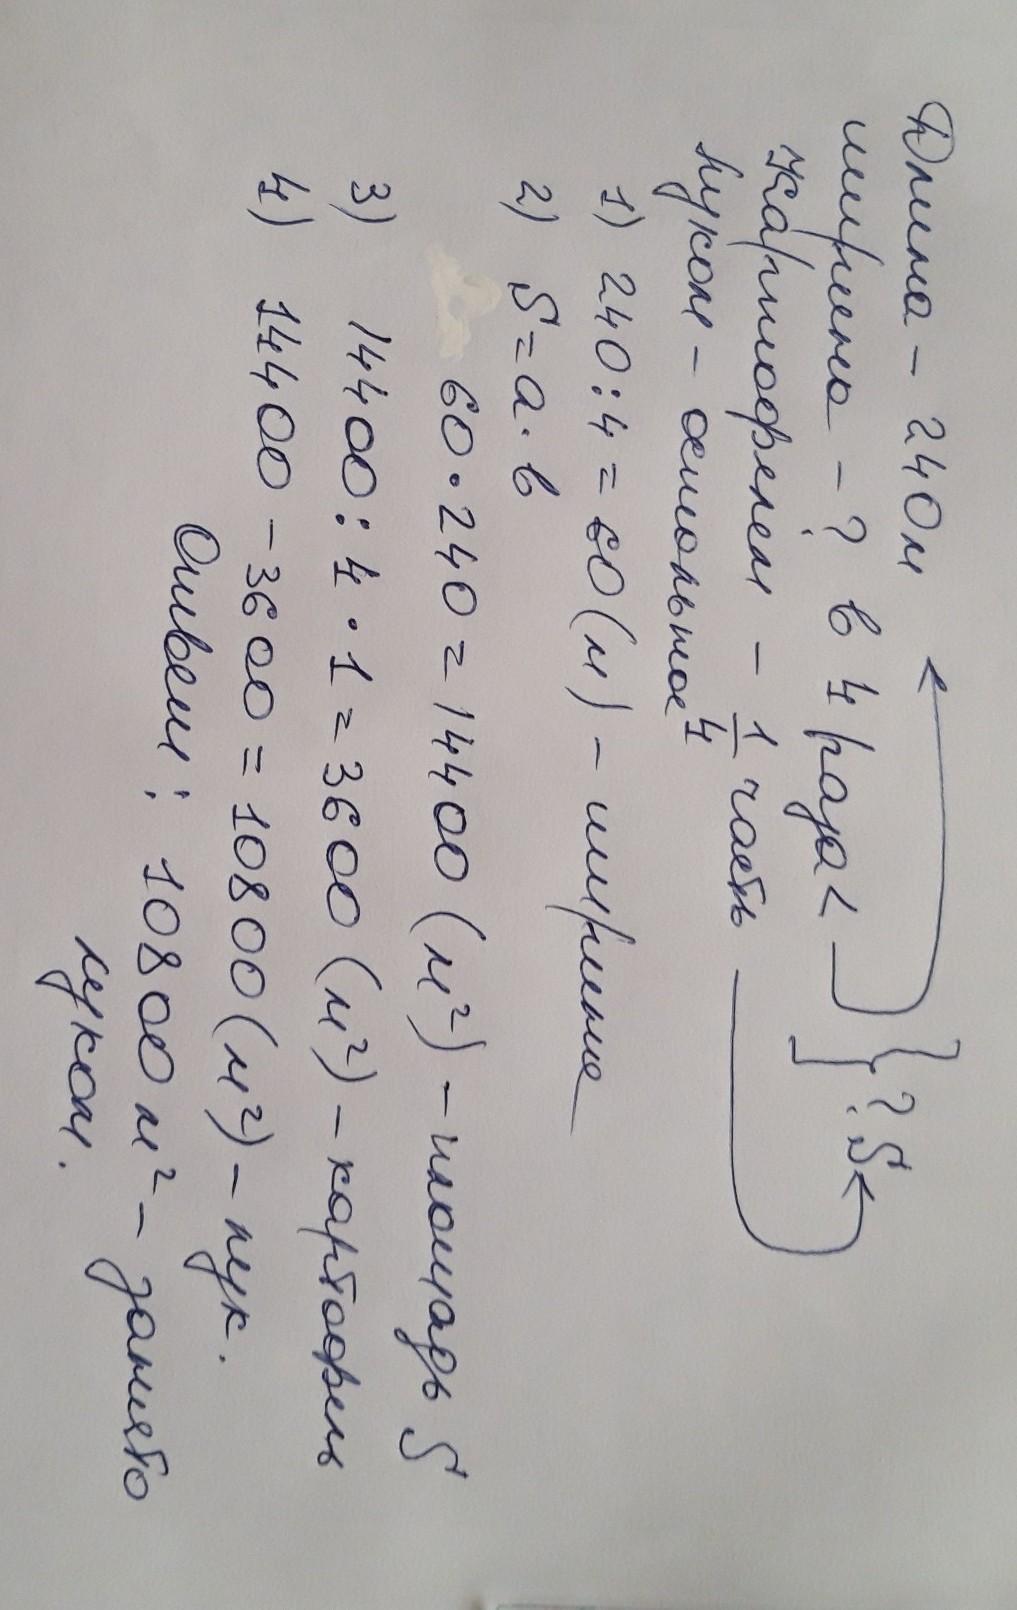 Длина - 240м
ширина - ? в 4 раза < } ? S
Картофелем - 1/4 часть
Луком - остальное
1) 240 : 4 = 60 (м) - ширина
2) S = a · b
60 · 240 = 14400 (м²) - площадь S
3) 14400 : 4 · 1 = 3600 (м²) - картофель
4) 14400 - 3600 = 10800 (м²) - лук.
Ответ : 10800 м² - занято
луком.